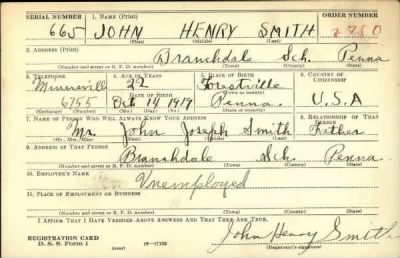 SERIAL NUMBER 1. NAME (Print) ORDER NUMBER
665 JOHN HENRY SMITH 2780
(First) (Middle) (Last)
2. ADDRESS (Print)
Branchdale Sch. Penna
(Number and street or R. F. D. number) (Town) (County) (State)
3. TELEPHONE 4. AGE IN YEARS 5. PLACE OF BIRTH 6. COUNTRY OF CITIZENSHIP
Minersville 22 Forestville
DATE OF BIRTH
6755 Oct 14 1917 Penna. U.S.A
(Exchange) (Number) (Mo.) (Day) (Yr.) (State or country)
7. NAME OF PERSON WHO WILL ALWAYS KNOW YOUR ADDRESS 8. RELATIONSHIP OF THAT PERSON
Mr. John Joseph Smith Father
(Mr., Mrs., Miss) (First) (Middle) (Last)
9. ADDRESS OF THAT PERSON
Branchdale Sch. Penna.
(Number and street or R. F. D. number) (Town) (County) (State)
10. EMPLOYER'S NAME
Unemployed
11. PLACE OF EMPLOYMENT OR BUSINESS
(Number and street or R. F. D. number) (Town) (County) (State)
I AFFIRM THAT I HAVE VERIFIED ABOVE ANSWERS AND THAT THEY ARE TRUE.
REGISTRATION CARD
D. S. S. Form 1 (over) 16—17105
John Henry Smith
(Registrant's signature)